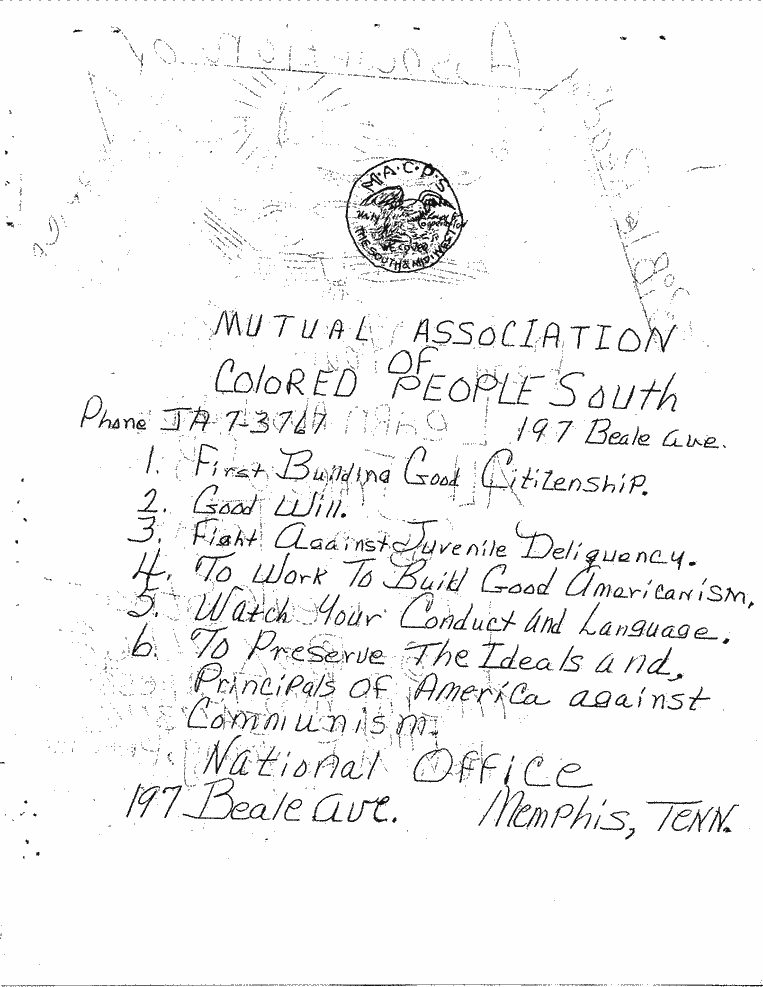 M.A.C.P.S
Unity
WE COVER
THE SOUTH & MID-WEST
MUTUAL ASSOCIATION
OF
COLORED PEOPLE SOUTH
Phone JA 7-3767 197 Beale Ave.
1. First Building Good Citizenship.
2. Good Will.
3. Fight Against Juvenile Deliquency.
4. To Work To Build Good Americanism.
5. Watch Your Conduct and Language.
6. To Preserve The Ideals and,
Principals Of America against
Communism.
National Office
197 Beale Ave. Memphis, TENN.